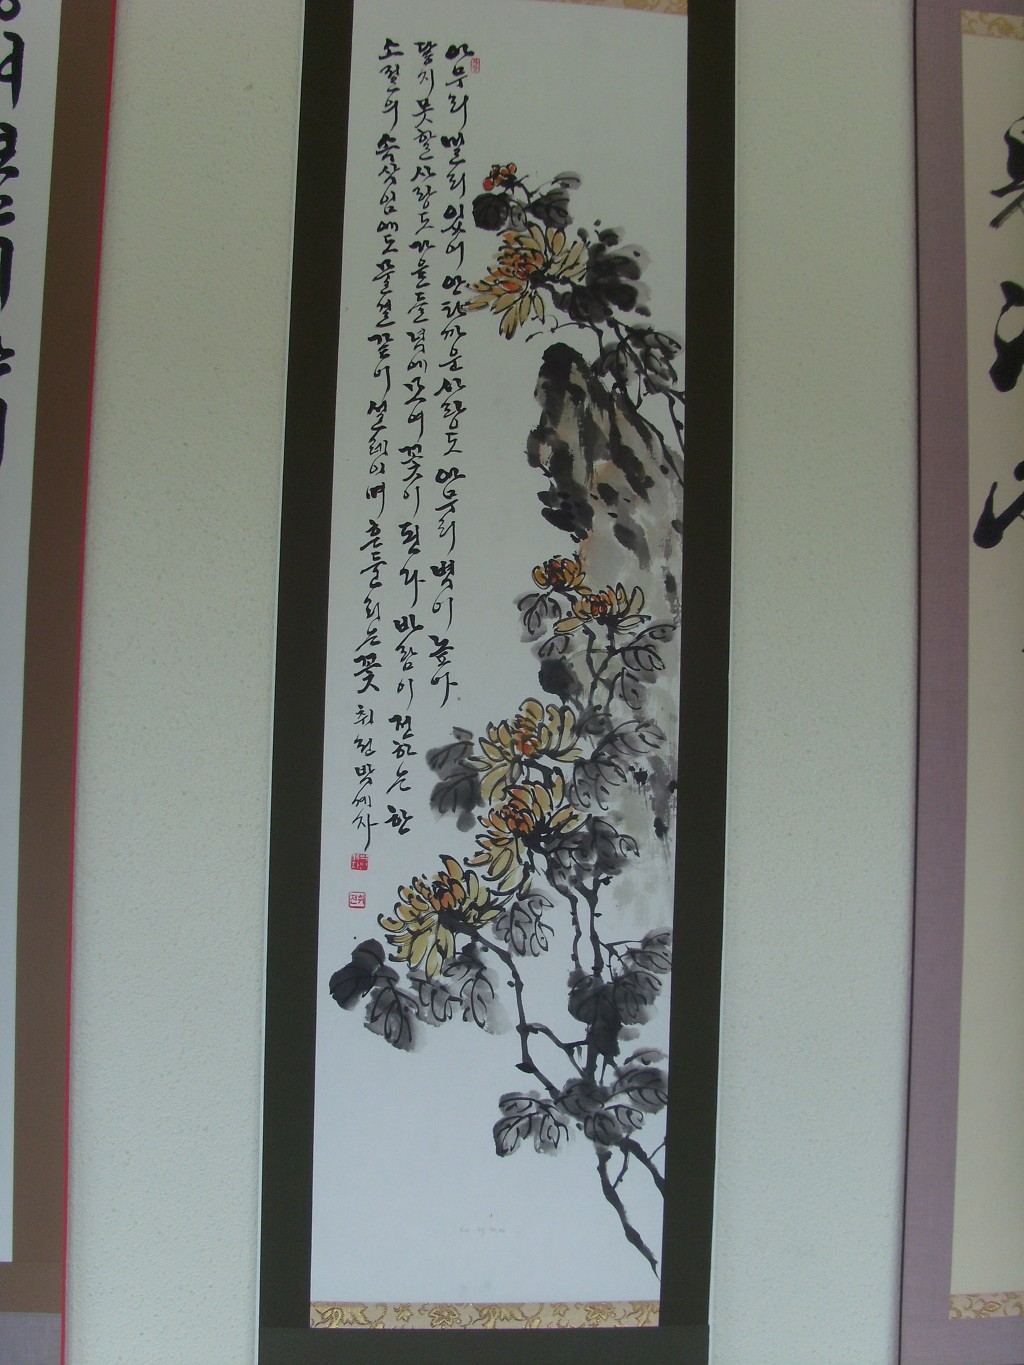 아무리 멀리 있어 안타까운 사랑도 아무리 벽이 높아
닿지 못할 사랑도 가을 들녘에 모여 꽃이 된다 바람이 전하는 한
소절의 속삭임에도 물결같이 설레이며 흔들리는 꽃 박세자